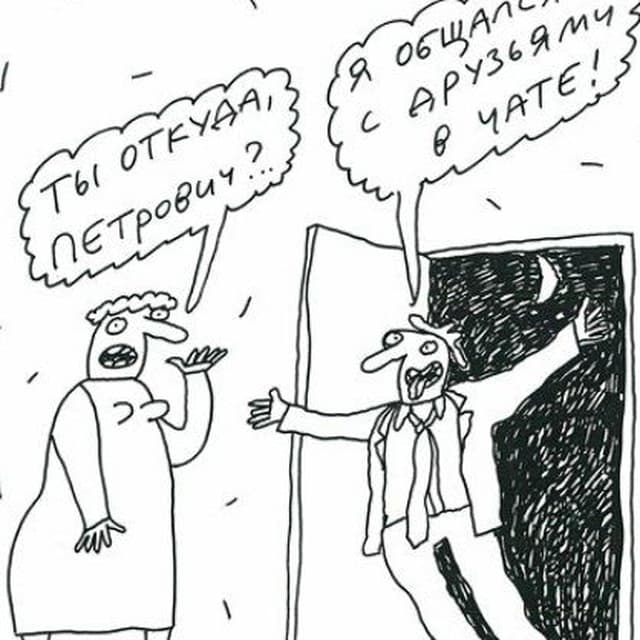 ТЫ ОТКУДА,
ПЕТРОВИЧ?..
Я ОБЩАЛСЯ
С ДРУЗЬЯМИ
В ЧАТЕ!